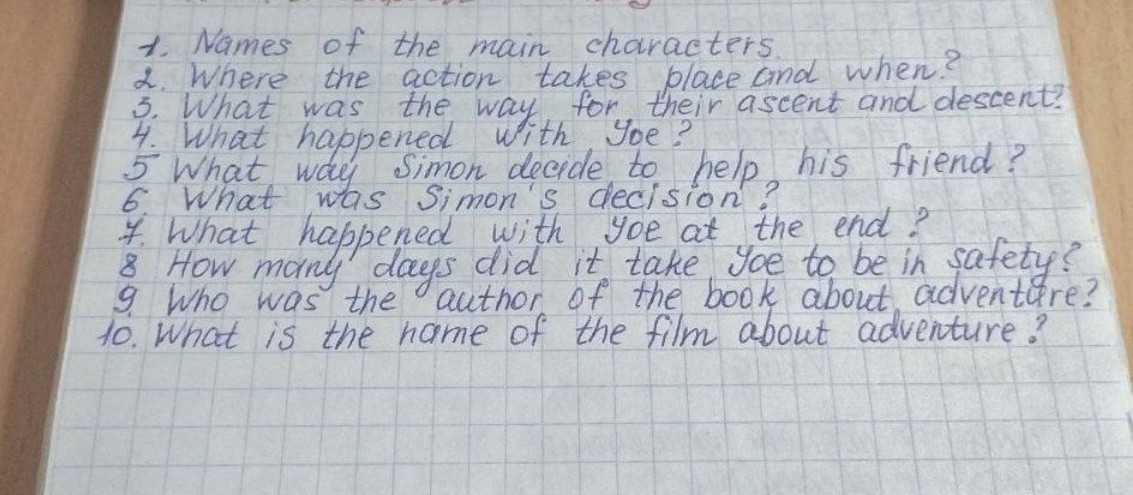 1. Names of the main characters.
2. Where the action takes place and when?
3. What was the way for their ascent and descent?
4. What happened with Yoe?
5 What way Simon decide to help his friend?
6 What was Simon's decision?
7. What happened with Yoe at the end?
8 How many days did it take Yoe to be in safety?
9 Who was the author of the book about adventure?
10. What is the name of the film about adventure?